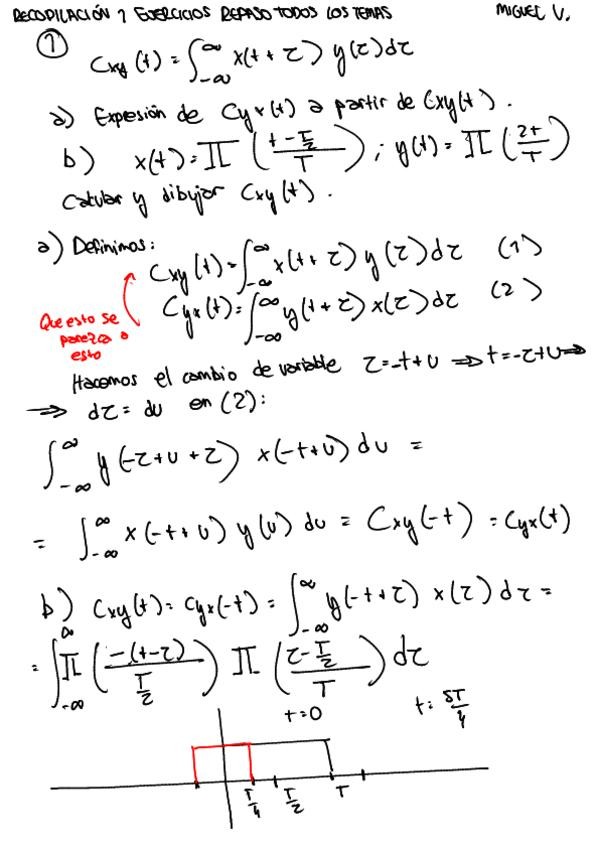 RECOPILACIÓN 7 EJERCICIOS REPASO TODOS LOS TEMAS MIGUEL V.
① Cxy(t) = ∫_{-∞}^{∞} x(t+τ) y(τ)dτ
a) Expresión de Cyx(t) a partir de Cxy(t).
b) x(t) = Π((t-T/2)/T) ; y(t) = Π(2t/T)
Calcular y dibujar Cxy(t).
a) Definimos:
Cxy(t) = ∫_{-∞}^{∞} x(t+τ) y(τ)dτ (1)
Cyx(t) = ∫_{-∞}^{∞} y(t+τ) x(τ)dτ (2)
Que esto se
parezca a
esto
Hacemos el cambio de variable τ=-t+u ⟹ t=-τ+u ⟹
⟹ dτ = du en (2):
∫_{-∞}^{∞} y(-τ+u+τ) x(-t+u) du =
= ∫_{-∞}^{∞} x(-t+u) y(u) du = Cxy(-t) = Cyx(t)
b) Cxy(t) = Cyx(-t) = ∫_{-∞}^{∞} y(-t+τ) x(τ) dτ =
= ∫_{-∞}^{∞} Π(-(t-τ)/(T/2)) Π((τ-T/2)/T) dτ
t=0 t=5T/4
T/4 T/2 T